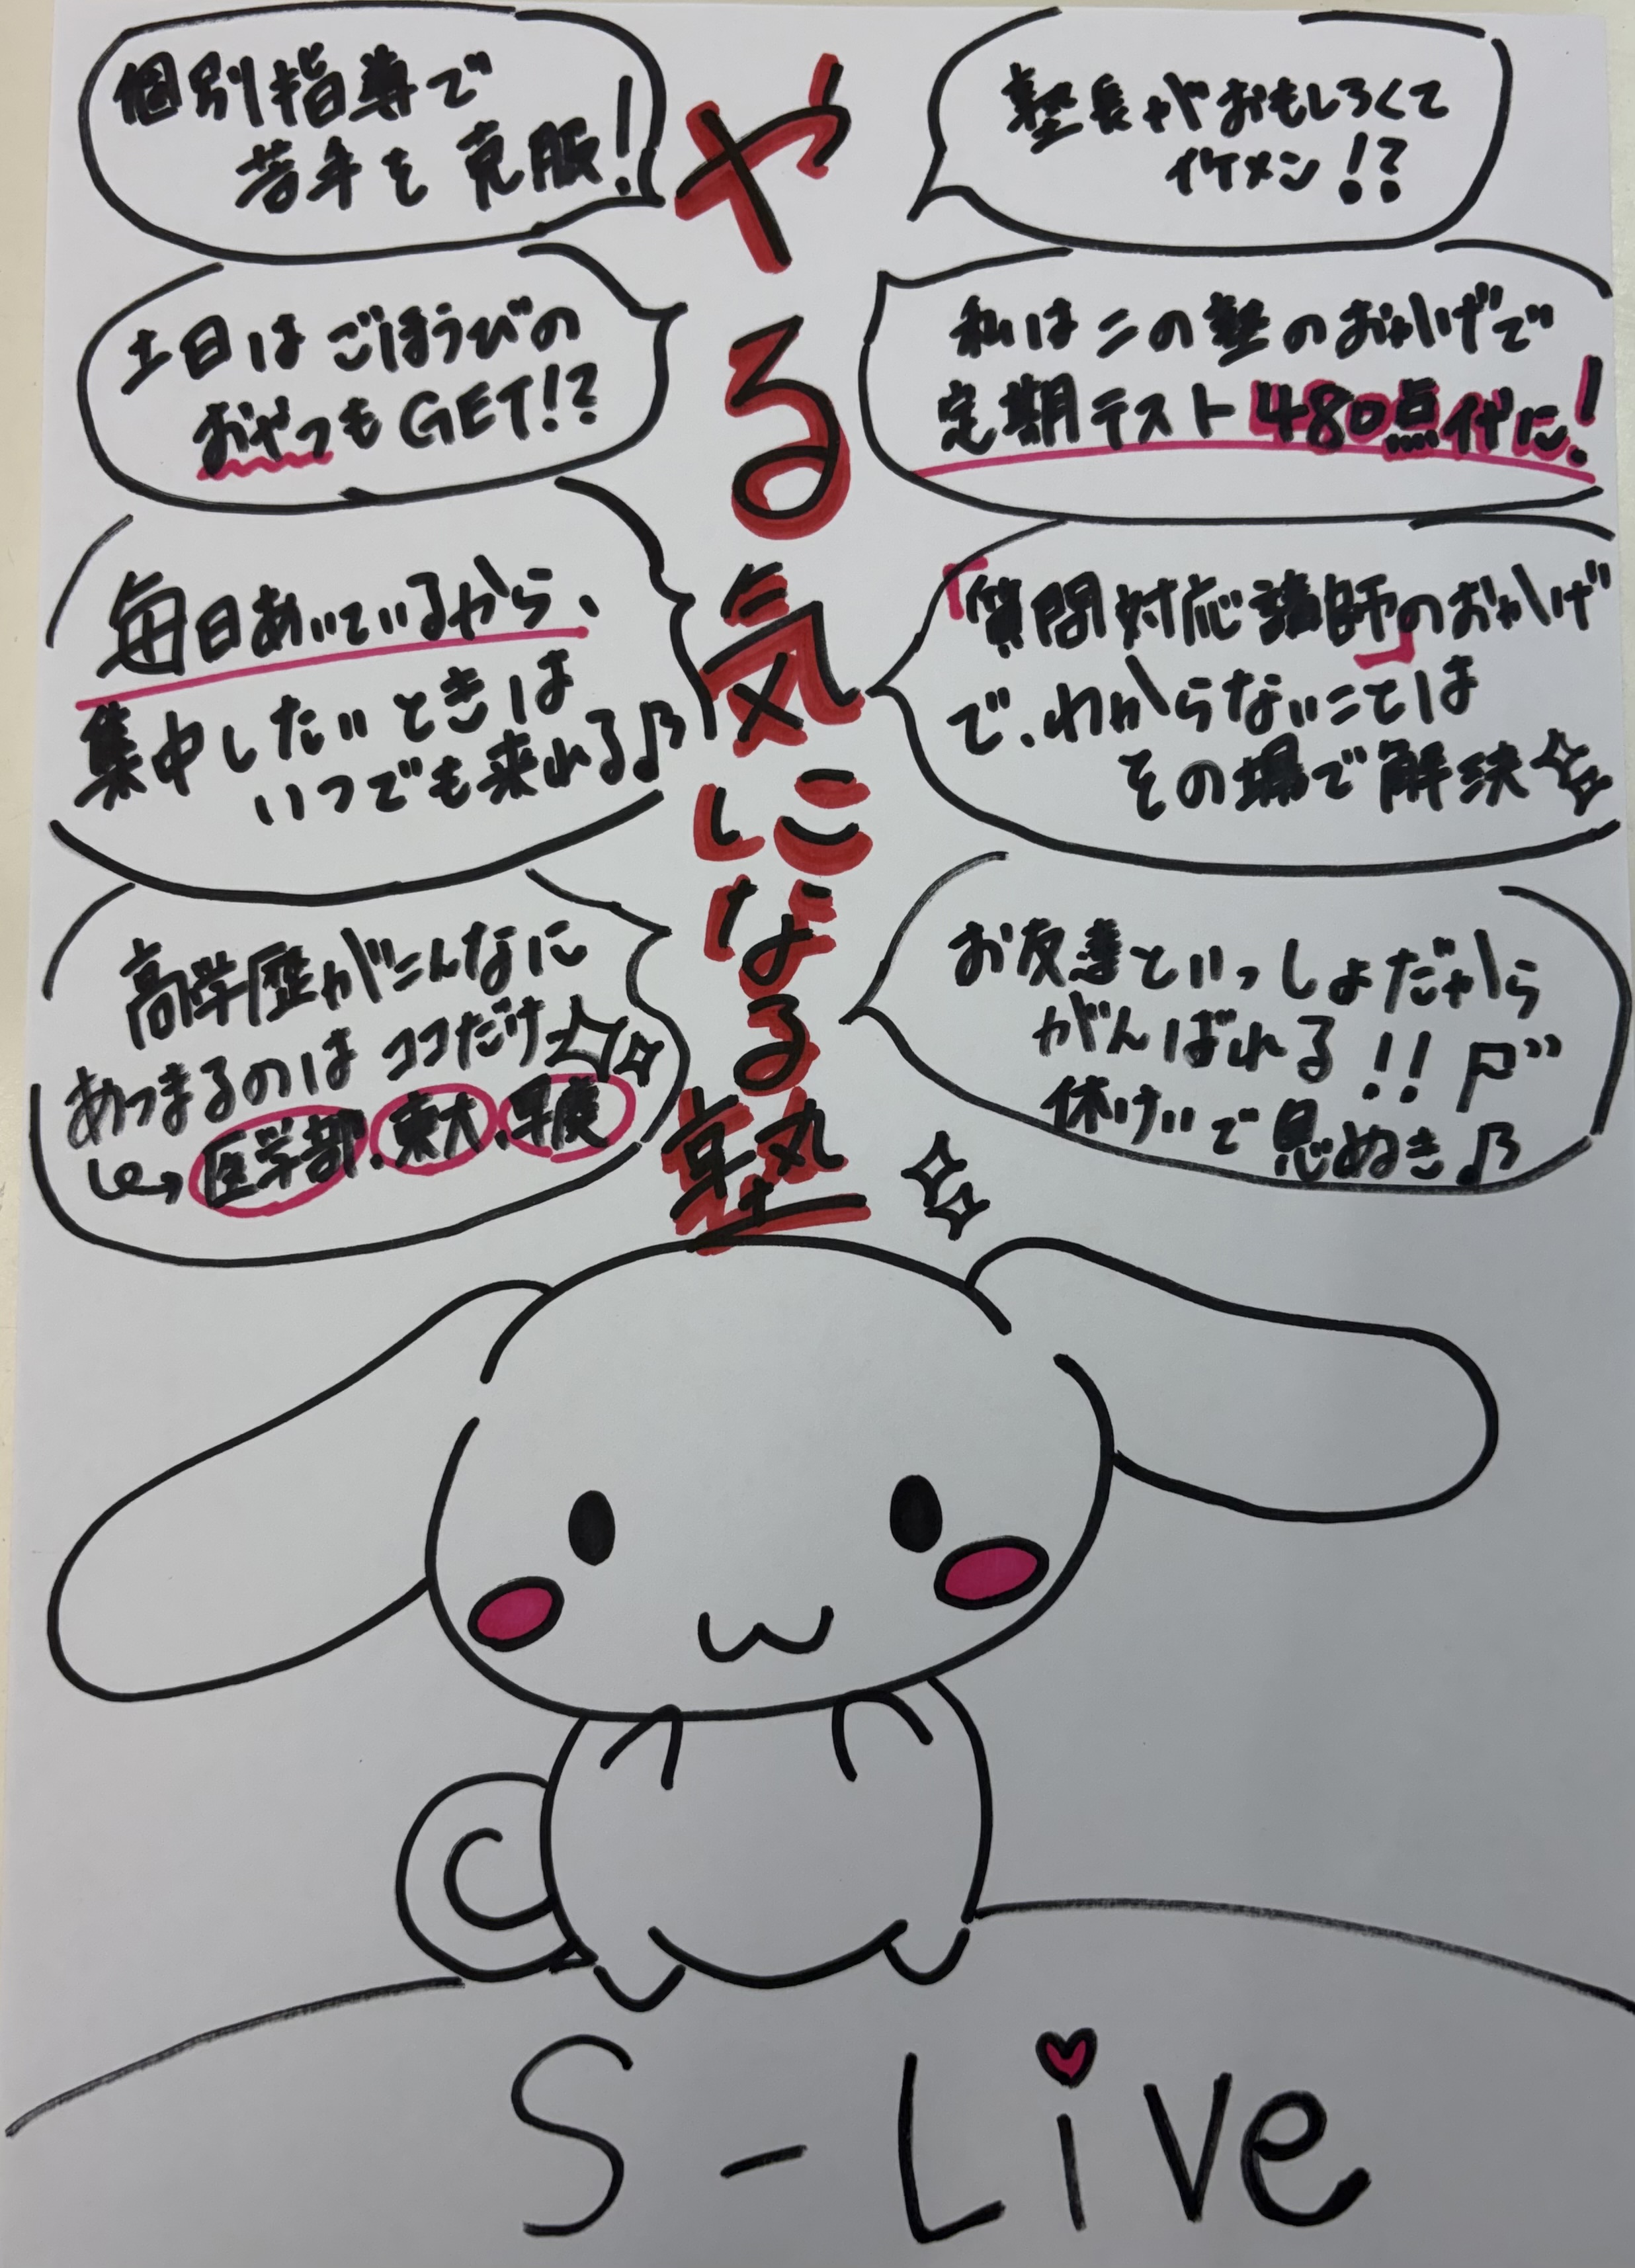 やる気になる塾
個別指導で
苦手を克服!
塾長がおもしろくて
イケメン!?
土日はごほうびの
おやつもGET!?
私はこの塾のおかげで
定期テスト480点代に!
毎日あいているから、
集中したいときは
いつでも来れる♪
「質問対応講師」のおかげ
で、わからないことは
その場で解決
高学歴がこんなに
あつまるのはココだけ
医学部、東大、早慶
お友達といっしょだから
がんばれる!!
休けいで息ぬき♪
S-Live